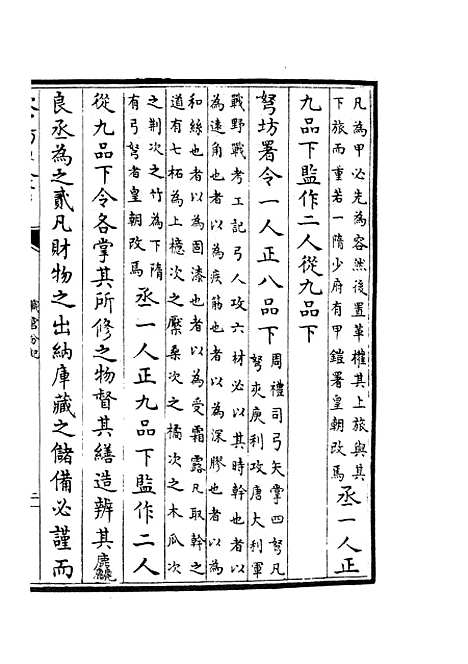 凡為甲必先為容然後置革權其上旅與其
下旅而重若一隋少府有甲鎧署皇朝改焉
丞一人正
九品下監作二人從九品下
弩坊署令一人正八品下
周禮司弓矢掌四弩凡
弩夾庾利攻唐大利車
戰野戰考工記弓人攻六材必以其時幹也者以
為遠角也者以為疾筋也者以為深膠也者以為
和絲也者以為固漆也者以為受霜露凡取幹之
道有七柘為上檍次之檿桑次之橘次之木瓜次
之荆次之竹為下隋
有弓弩者皇朝改焉
丞一人正九品下監作二人
從九品下令各掌其所修之物督其繕造辨其麤
良丞為之貳凡財物之出納庫藏之儲備必謹而
職官分紀
二